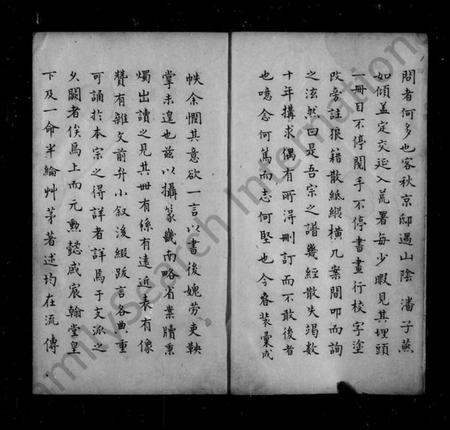 問者何多也客秋京邸遇山陰潘子燕
如傾盖定交延入荒署每少暇見其埋頭
一冊目不停閱手不停書畫行校字塗
改旁註狼藉散紙縱橫几案間叩而詢
之泫然曰是吾宗之譜幾經散失竭數
十年搆求偶有所得刪訂而不敢後者
也噫念何篤而志何堅也今春裝彙成
帙余悃其意欲一言以書後媿勞吏鞅
掌未遑也兹以攝篆畿南略省案牘熏
燭出讀之見其冊有係有遠近表有像
贊有雜文前弁小叙後綴跋言各典重
可誦於本宗之得詳者詳焉于支派之
久闕者俟焉上而元勲懿戚宸翰堂皇
下及一命半綸艸茅著述均在流傳
FamilySearch International